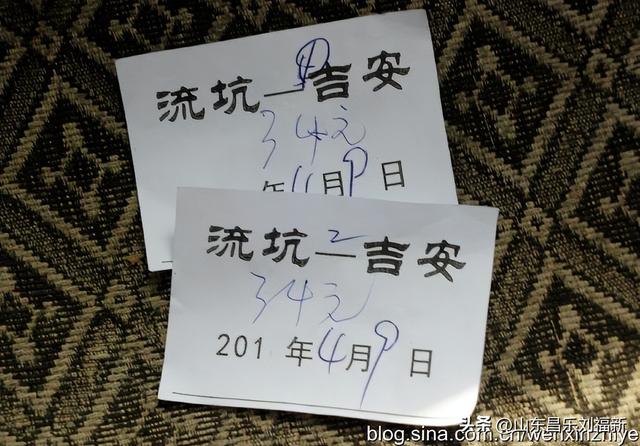 流坑—吉安
34元
年4月9日
2
流坑—吉安
34元
201 年4月9日
头条@山东昌乐刘福新
blog.sina.com.cn/weixinzhiye